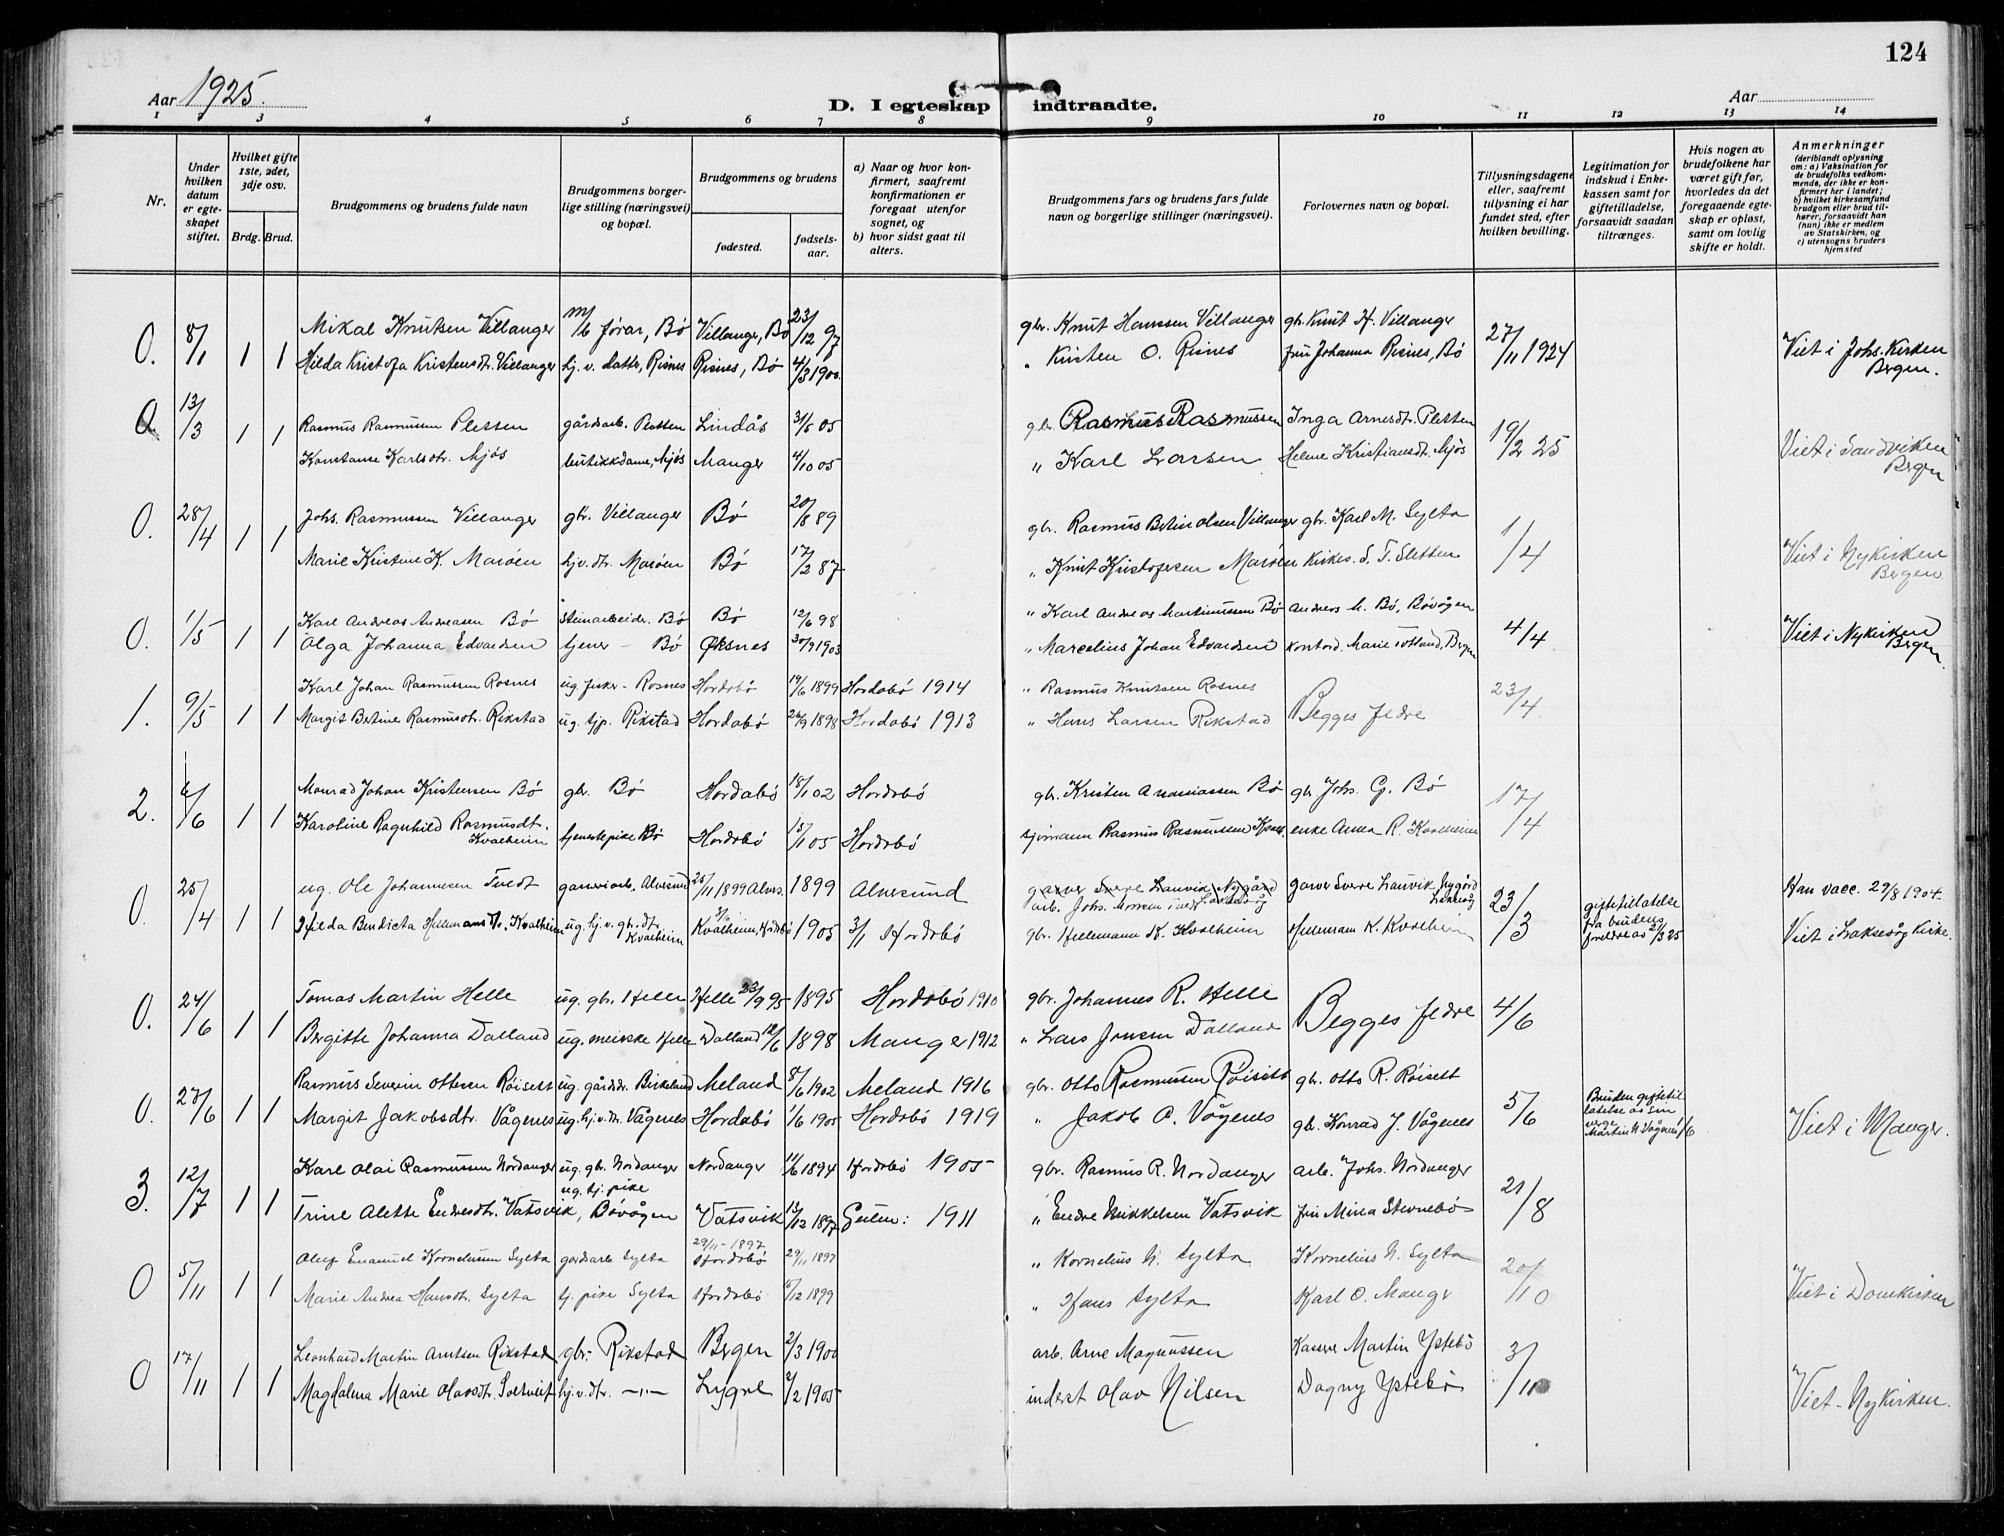 124
Aar 1925.
D. I egteskap indtraadte.
Aar
1 2 3 4 5 6 7 8 9 10 11 12 13 14
Nr.
Under hvilken datum er egteskapet stiftet.
Hvilket gifte 1ste, 2det, 3dje osv.
Brdg. Brud.
Brudgommens og brudens fulde navn
Brudgommens borgerlige stilling (næringsvei) og bopæl.
Brudgommens og brudens
fødested.
fødselsaar.
a) Naar og hvor konfirmert, saafremt konfirmationen er foregaat utenfor sognet, og
b) hvor sidst gaat til alters.
Brudgommens fars og brudens fars fulde navn og borgerlige stillinger (næringsvei).
Forlovernes navn og bopæl.
Tillysningsdagene eller, saafremt tillysning ei har fundet sted, efter hvilken bevilling.
Legitimation for indskud i Enkekassen samt for giftetilladelse, forsaavidt saadan tiltrænges.
Hvis nogen av brudefolkene har været gift før, hvorledes da det foregaaende egteskap er opløst, samt om lovlig skifte er holdt.
Anmerkninger (deriblandt oplysning om: a) Vaksination for de brudefolks vedkommende, der ikke er konfirmert her i landet; b) hvilket kirkesamfund brudgom eller brud tilhører, forsaavidt han (hun) ikke er medlem av Statskirken, og c) utensogns bruders hjemsted
0. 8/1 1 1 Mikal Knutsen Villanger m/b fører, Bø Villanger, Bø 23/12 97 gbr. Knut Hanssen Villanger gbr. Knut H. Villanger 27/11 1924 Viet i Johs. Kirken Bergen.
Hilda Kristofa Kristensdtr. Villanger hj. v. datter, Risnes Risnes, Bø 4/3 1900 " Kristen O. Risnes frü Johanna Risnes, Bø
0. 13/3 1 1 Rasmus Rasmussen Pletten gårdsarb. Pletten Lindås 3/5 05 gbr. Rasmus Rasmussen Inga Arnesdtr. Pletten 19/2 25 Viet i Sandviken Bergen
Konstanse Karlsdtr. Mjøs butikkdame, Mjøs Manger 4/10 05 " Karl Larsen Helene Kristiansdtr. Mjøs
0. 28/4 1 1 Johs. Rasmussen Villanger gbr. Villanger Bø 20/8 89 gbr. Rasmus Bertin Olsen Villanger gbr. Karl M. Sylta 1/4 Viet i Nykirken Bergen.
Marie Kristine K. Marøen hj. v. dtr. Marøen Bø 17/2 87 " Knut Kristofersen Marøen Kirkes. S. T. Sletten
0. 1/5 1 1 Karl Andreas Andreasen Bø Steinarbeider. Bø Bø 12/6 98 " Karl Andreas Martinussen Bø Andreas M. Bø, Bøvågen 4/4 Viet i Nykirken Bergen.
Olga Johanna Edvardsen tjener - Bø Øksnes 30/9 1903 " Marcelius Johan Edvardsen kontord. Marie Totland, Bergen
1. 9/5 1 1 Karl Johan Rasmussen Rosnes ug. fisker - Rosnes Hordabø 19/6 1899 Hordabø 1914 " Rasmus Knutsen Rosnes Begges fedre 23/4
Margit Bertine Rasmusdtr. Rikstad ug. tjp. Rikstad Hordabø 26/9 1898 Hordabø 1913 " Hans Larsen Rikstad
2. 6/6 1 1 Monrad Johan Kristensen Bø gbr. Bø Hordabø 18/1 02 Hordabø gbr. Kristen Ananiassen Bø gbr. Johs. G. Bø 17/4
Karoline Ragnhild Rasmusdtr. Kvalheim tjenestepike Bø Hordabø 15/1 05 Hordabø sjømann Rasmus Rasmussen enke Anna R. Kvalheim
0. 25/4 1 1 ug. Ole Johannesen Tvedt garveriarb. Alvesund 25/11 1899 Alvers. 1899 Alversund garver Sverre Lauvik Nygård arb. Johs. garver Sverre Lauvik, Nygård Laksevåg 23/3 giftetilatelse fra brudens foreldre av 2/3 25 Han vacc. 29/8 1904.
Hilda Bendicta Hellemansdtr. Kvalheim ug. hj. v. gbr. dtr. Kvalheim Kvalheim, Hordabø 1905 3/1 Hordabø gbr. Hellemann K. Kvalheim Hellemann K. Kvalheim Viet i Laksevåg Kirke.
0. 24/6 1 1 Tomas Martin Helle ug. gbr. Helle Helle 23/9 95 1895 Hordabø 1910 gbr. Johannes R. Helle Begges fedre 4/6
Bergitte Johanna Dalland ug. meierske Helle Dalland 12/6 1898 Manger 1912 " Lars Jonsen Dalland
0. 27/6 1 1 Rasmus Severin Ottesen Røisett ug. gårdsbr. Birkeland Meland 8/6 1902 Meland 1916 gbr. Otto Rasmussen Røisett gbr. Otto R. Røisett 5/6 Bruden giftetillatelse av sin verge Martin N. Vågenes 1/6
Margit Jakobsdtr. Vågenes ug. hj. v. dtr. Vågenes Hordabø 1/6 1905 Hordabø 1919 " Jakob O. Vågenes gbr. Konrad J. Vågenes Viet i Manger.
3. 12/7 1 1 Karl Olai Rasmussen Nordanger ug. gbr. Nordanger Nordanger 11/6 1894 Hordabø 1905 gbr. Rasmus R. Nordanger arb. Johs. Nordanger 21/8
Trine Alette Endresdtr. Vatsvik, ug. tj. pike Bøvågen Vatsvik 13/12 1897 Gulen: 1911 " Endre Mikkelsen Vatsvik frü Mina Stevnebø
0 5/11 1 1 Oluf Emanuel Kornelíussen Sylta gårdsarb. Sylta 29/11-1897 Hordabø 29/11 1897 " Kornelius N. Sylta Kornelius N. Sylta 20/10 Viet i Domkirken
Marie Andrea Hansdtr. Sylta tj. pike Sylta Hordabø 15/12 1899 " Hans Sylta Karl O. Mange
0 17/11 1 1 Leonhard Martin Arntsen Rikstad gbr. Rikstad Bergen 2/3 1900 arb. Arne Magnussen Kasserer Martin Ystebø 3/11 Viet - Nykirken.
Magdalena Marie Olavsdtr. Soltveit hj. v. dtr. -"- Lygre 9/2 1905 inderst Olav Nilsen Dagny Ystebø